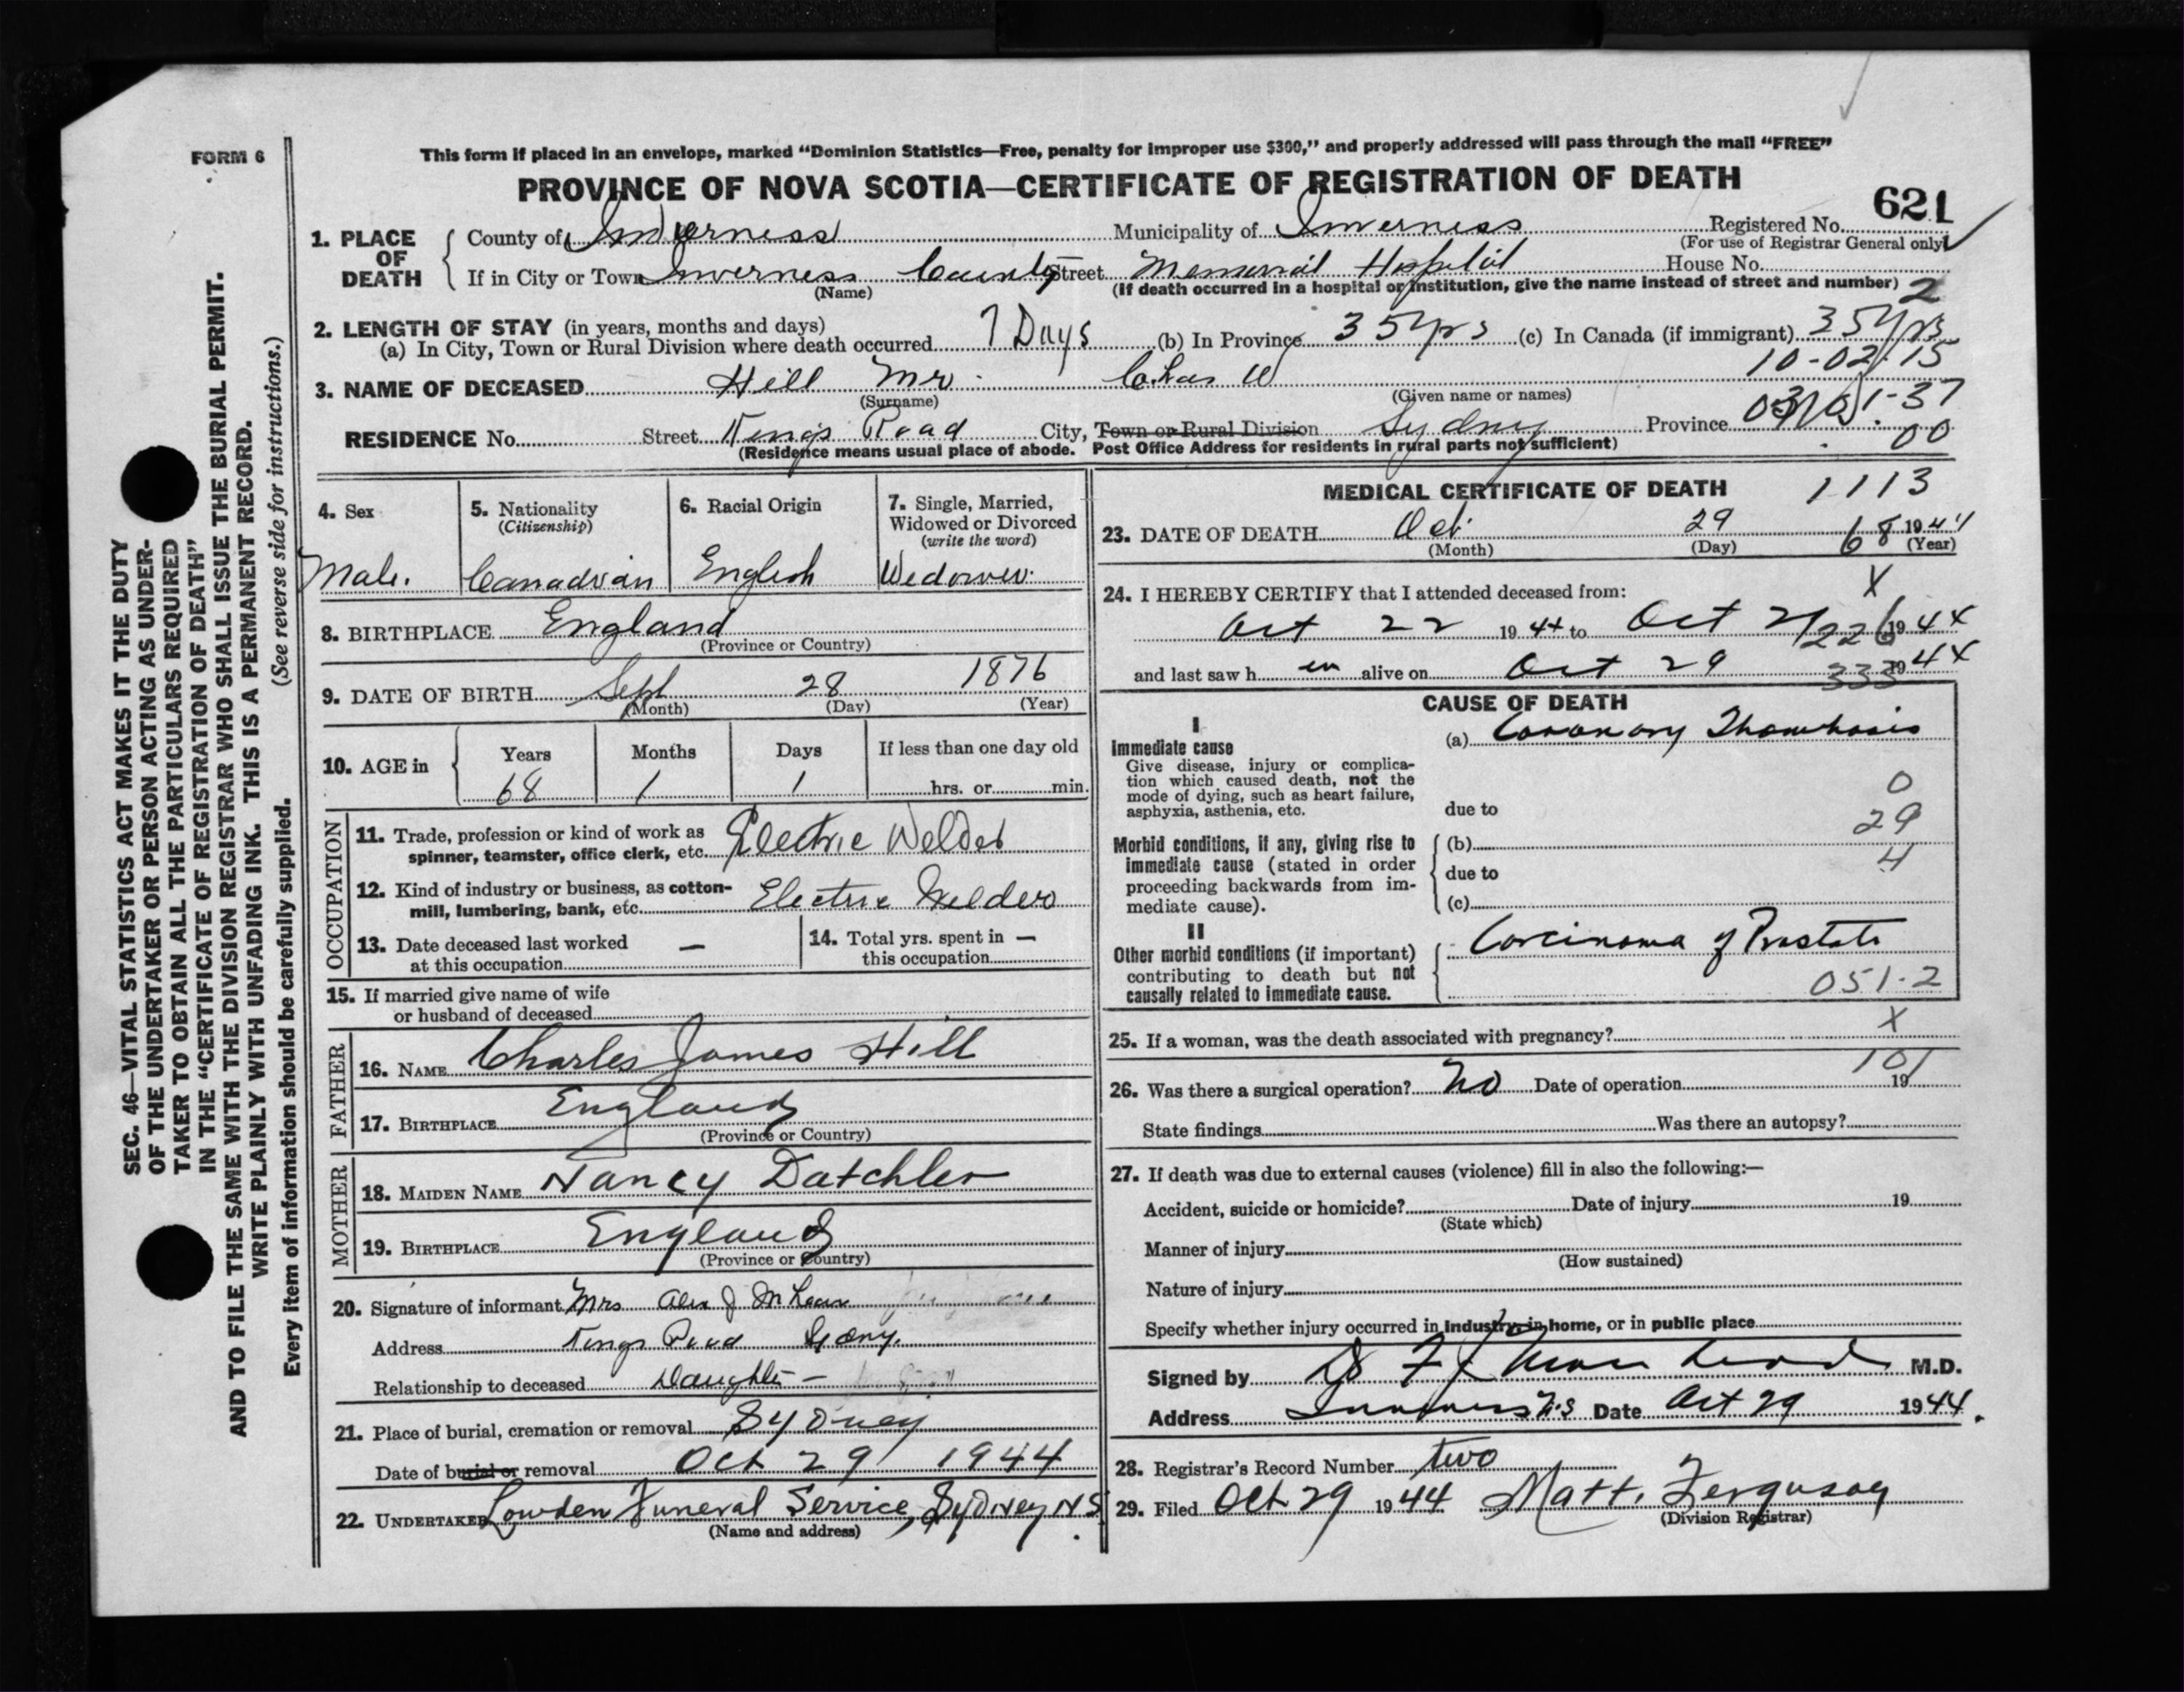 FORM 6
This form if placed in an envelope, marked “Dominion Statistics—Free, penalty for improper use $300,” and properly addressed will pass through the mail “FREE”
PROVINCE OF NOVA SCOTIA—CERTIFICATE OF REGISTRATION OF DEATH
621
1. PLACE OF DEATH
County of Inverness Municipality of Inverness Registered No.
(For use of Registrar General only)
If in City or Town Inverness County Street Memorial Hospital House No.
(Name) (If death occurred in a hospital or institution, give the name instead of street and number) 2
2. LENGTH OF STAY (in years, months and days)
(a) In City, Town or Rural Division where death occurred 7 Days (b) In Province 35 yrs (c) In Canada (if immigrant) 35 yrs
10-02-15
3. NAME OF DECEASED Hill Mr. Chas W
(Surname) (Given name or names)
RESIDENCE No. Street Kings Road City, Town or Rural Division Sydney Province
00
(Residence means usual place of abode. Post Office Address for residents in rural parts not sufficient)
4. Sex
Male.
5. Nationality
(Citizenship)
Canadian
6. Racial Origin
English
7. Single, Married,
Widowed or Divorced
(write the word)
Widower.
8. BIRTHPLACE England
(Province or Country)
9. DATE OF BIRTH Sept 28 1876
(Month) (Day) (Year)
10. AGE in Years Months Days If less than one day old
68 1 1 hrs. or min.
OCCUPATION
11. Trade, profession or kind of work as
spinner, teamster, office clerk, etc. Electric Welder
12. Kind of industry or business, as cotton-
mill, lumbering, bank, etc. Electric Welder
13. Date deceased last worked —
at this occupation
14. Total yrs. spent in —
this occupation
15. If married give name of wife
or husband of deceased
FATHER
16. NAME Charles James Hill
17. BIRTHPLACE England
(Province or Country)
MOTHER
18. MAIDEN NAME Nancy Datchler
19. BIRTHPLACE England
(Province or Country)
20. Signature of informant Mrs Alex J McLean
Address Kings Road Sydney.
Relationship to deceased Daughter —
21. Place of burial, cremation or removal Sydney
Date of burial or removal Oct 29 1944
22. UNDERTAKER Lowden Funeral Service, Sydney N.S.
(Name and address)
MEDICAL CERTIFICATE OF DEATH 1113
23. DATE OF DEATH Oct. 29 68 1944
(Month) (Day) (Year)
24. I HEREBY CERTIFY that I attended deceased from: X
Oct 22 1944 to Oct 29 226 1944
and last saw h im alive on Oct 29 333 1944
CAUSE OF DEATH
I
Immediate cause
Give disease, injury or complica-
tion which caused death, not the
mode of dying, such as heart failure,
asphyxia, asthenia, etc.
(a) Coronary Thombosis
0
due to
29
Morbid conditions, if any, giving rise to
immediate cause (stated in order
proceeding backwards from im-
mediate cause).
(b)
4
due to
(c)
II
Other morbid conditions (if important)
contributing to death but not
causally related to immediate cause.
Carcinoma of Prostate
051-2
25. If a woman, was the death associated with pregnancy? X
101
26. Was there a surgical operation? No Date of operation 19
State findings Was there an autopsy?
27. If death was due to external causes (violence) fill in also the following:—
Accident, suicide or homicide? Date of injury 19
(State which)
Manner of injury
(How sustained)
Nature of injury
Specify whether injury occurred in industry, in home, or in public place
Signed by M.D.
Address Inverness N.S Date Oct 29 1944.
28. Registrar's Record Number two
29. Filed Oct 29 1944 Matt. Ferguson
(Division Registrar)
SEC. 46—VITAL STATISTICS ACT MAKES IT THE DUTY
OF THE UNDERTAKER OR PERSON ACTING AS UNDER-
TAKER TO OBTAIN ALL THE PARTICULARS REQUIRED
IN THE “CERTIFICATE OF REGISTRATION OF DEATH”
AND TO FILE THE SAME WITH THE DIVISION REGISTRAR WHO SHALL ISSUE THE BURIAL PERMIT.
WRITE PLAINLY WITH UNFADING INK. THIS IS A PERMANENT RECORD.
(See reverse side for instructions.)
Every item of information should be carefully supplied.